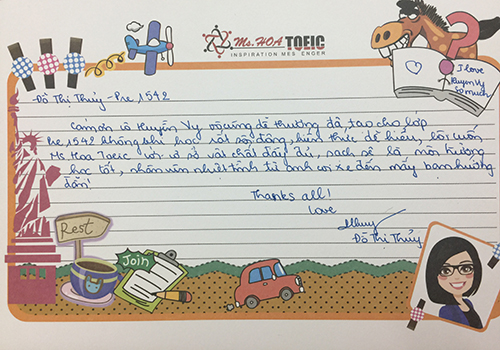 Ms. HOA TOEIC
INSPIRATION MESSENGER
I love
Huyền Vy
so much
Đỗ Thị Thủy - Pre 1542
Cảm ơn cô Huyền Vy dễ thương đã tạo cho lớp
Pre 1542 không khí học rất sôi động, kiến thức dễ hiểu, lôi cuốn
Ms Hoa Toeic với cơ sở vật chất đầy đủ, sạch sẽ là môi trường
học tốt, nhân viên nhiệt tình từ anh coi xe đến mấy bạn hướng
dẫn!
Thanks all!
Love
Thuy
Đỗ Thị Thủy
Rest
Join